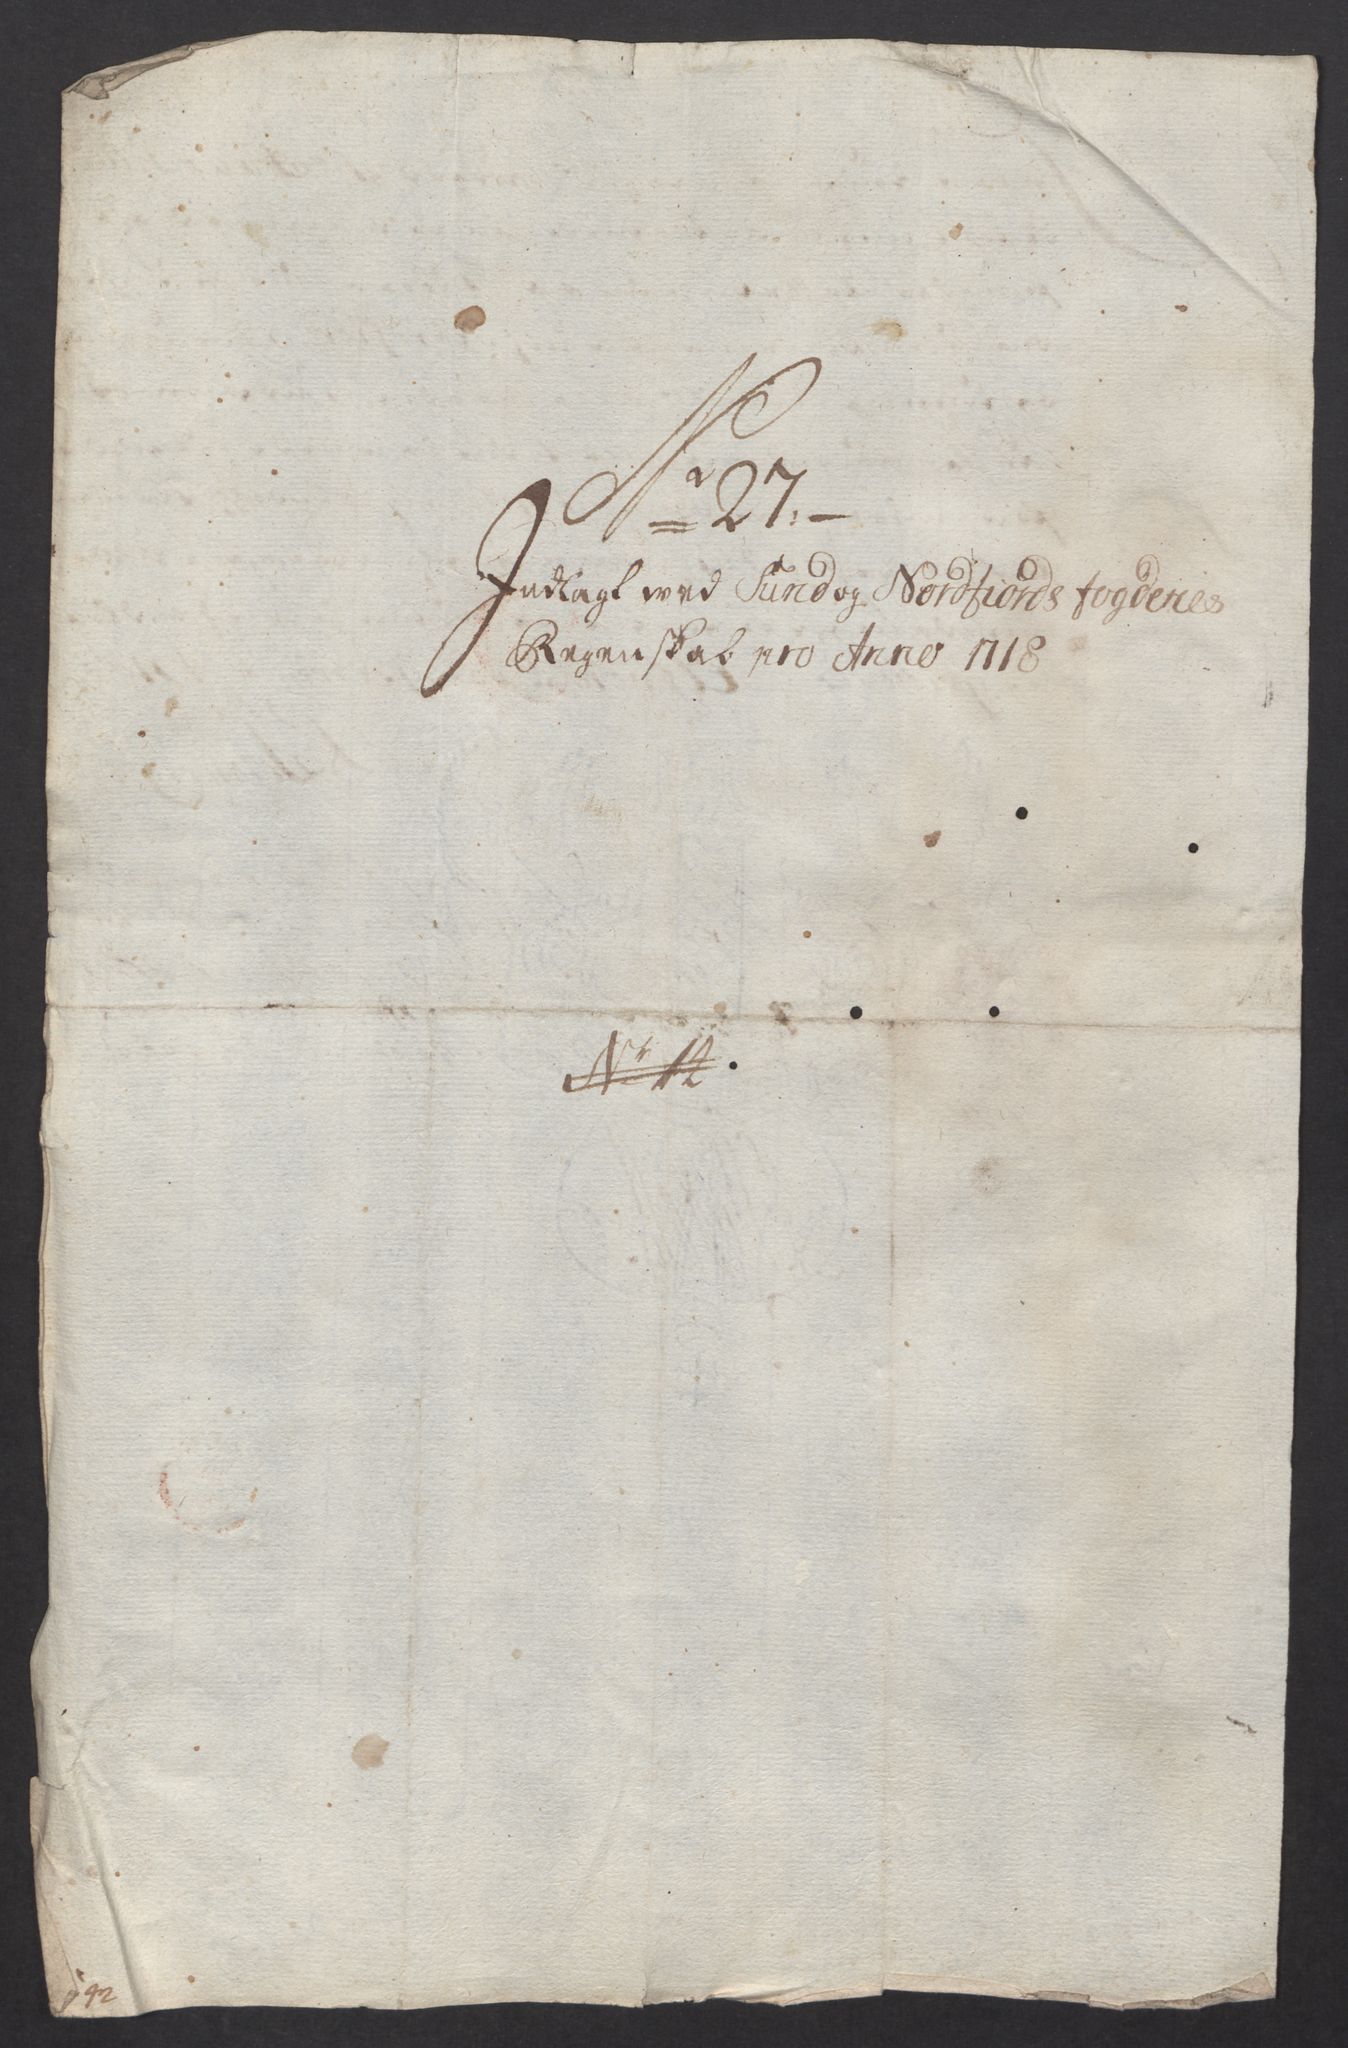 No 27.
Indlagt med Sund og Nordfiords fogderies
Regenskab pro Anno 1718
Nr 12.